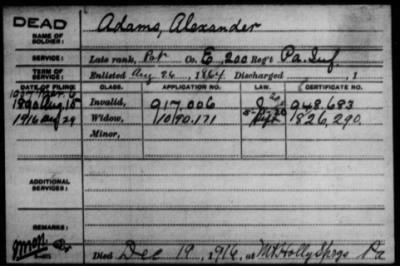 DEAD
NAME OF SOLDIER:
Adams, Alexander
SERVICE:
Late rank, Pvt Co. E, 200 Reg't Pa. Inf.
TERM OF SERVICE:
Enlisted Aug 26, 1864 Discharged , 1
DATE OF FILING. CLASS. APPLICATION NO. LAW. CERTIFICATE NO.
1890 Aug 15 Invalid, 917.006 948.683
1916 Aug 29 Widow, 1090.171 826.290.
Minor,
ADDITIONAL SERVICES:
REMARKS:
Died Dec 19, 1916, at Mt. Holly Sprgs Pa